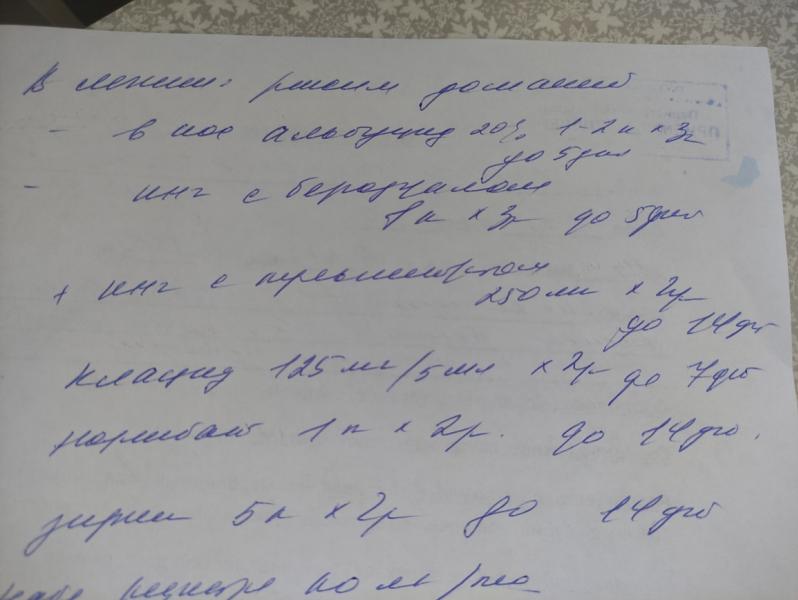 В лечении: режим домашний
- в нос альбуцид 20% 1-2 к х 3р
до 5 дн
- инг с беродуалом
8 к х 3р до 5 дней
+ инг с пульмикортом
250 мкг х 2р
до 14 дн
Клацид 125 мг/5мл х 2р до 7 дн
нормобакт 1 п х 2р. до 14 дн.
зиртек 5 к х 2р до 14 дн